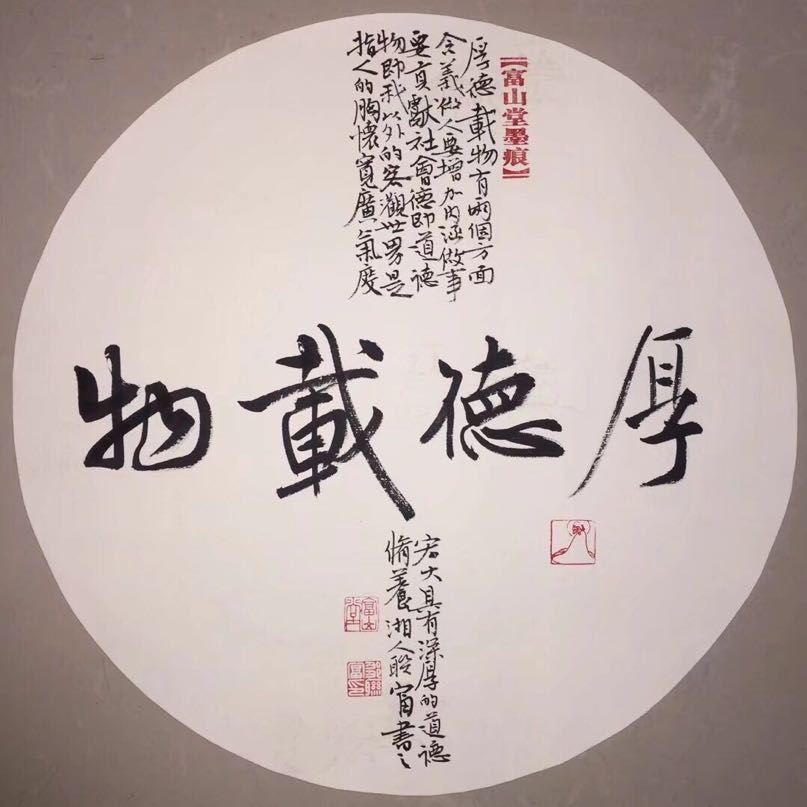 【富山堂墨痕】
厚德載物有兩個方面
含義做人要增加内涵做事
要貢獻社會德即道德
物即我以外的客觀世界是
指人的胸懷寬廣氣度
厚德載物
宏大具有深厚的道德
脩養湘人聆富書之
富山堂